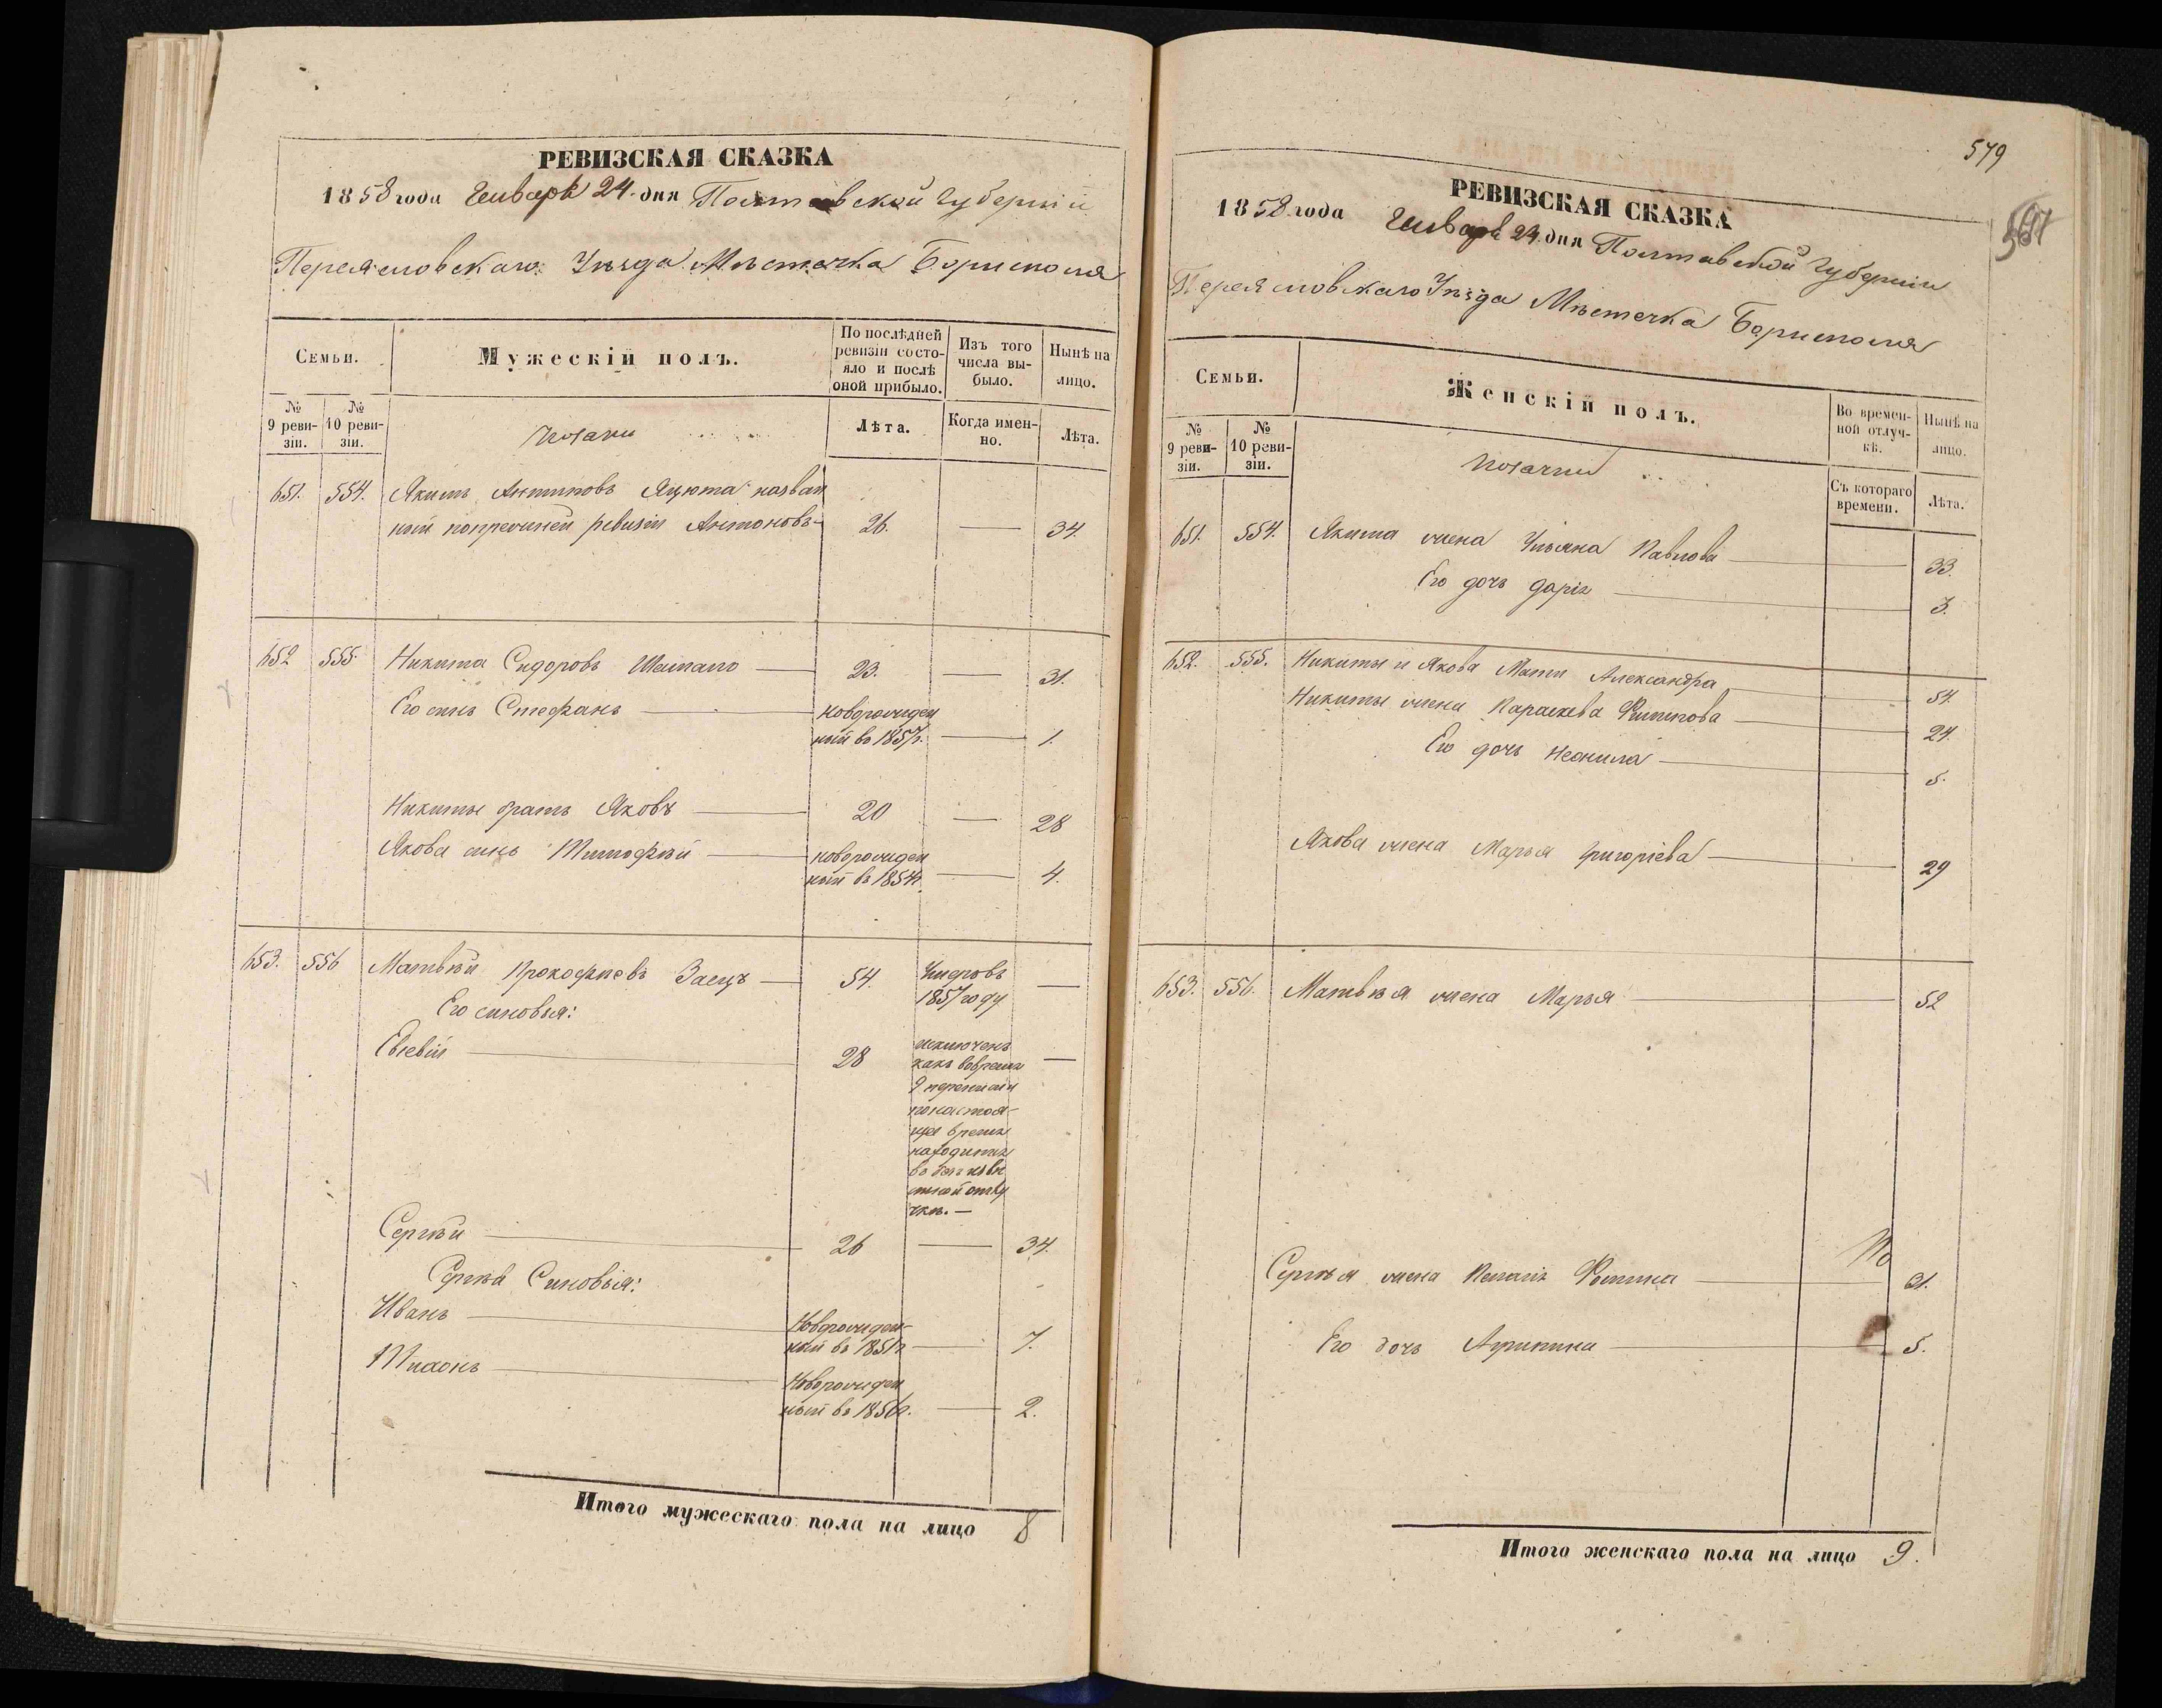 РЕВИЗСКАЯ СКАЗКА
1858 года Генваря 24 дня Полтавской Губерніи
Переясловскаго Уѣзда Мѣстечка Борисполя
Семьи.
Мужескій полъ.
По послѣдней ревизіи состояло и послѣ оной прибыло.
Изъ того числа выбыло.
Нынѣ на лицо.
№ 9 ревизіи.
№ 10 ревизіи.
Козаки
Лѣта.
Когда именно.
Лѣта.
651. 554. Якимъ Антиповъ Яцюта назван
ный попрежней ревизіи Антоновъ 26. — 34.
652 555. Никита Сидоровъ 23. — 31.
Его сынъ Стефанъ — новорожден
ный въ 1857г. — 1.
Никиты братъ Яковъ — 20 — 28
Якова сынъ Тимофѣй — новорожден
ный въ 1854г. — 4.
653. 556 Матвѣй Прокофіевъ Заецъ — 54. Умеръ въ —
1857 году
Его сыновья:
Евсевій — 28 исключенъ —
какъ вовремя
9 переписи
понастоя-
ще время
находится
въ безъизвѣ
стной отлу
чкѣ. —
Сергѣй — 26 — 34.
Сергѣя Сыновья:
Иванъ — Новорожден-
ный въ 1851г. — 7.
Тихонъ — Новорожден
ный въ 1856г. — 2.
Итого мужескаго пола на лицо 8
579
РЕВИЗСКАЯ СКАЗКА
1858 года Генваря 24 дня Полтавской Губерніи
Переясловскаго Уѣзда Мѣстечка Борисполя
Семьи.
Женскій полъ.
Во временной отлучкѣ.
Нынѣ на лицо.
№ 9 ревизіи.
№ 10 ревизіи.
Козачки
Съ котораго времени.
Лѣта.
651. 554. Якима жена Ульяна Павлова — 33.
Его дочь Дарія — 3.
652. 555. Никиты и Якова Мати Александра — 54.
Никиты жена Параскева Филипова — 24.
Его дочь Неонила — 5.
Якова жена Марья Григоріева — 29
653. 556. Матвѣя жена Марья — 52
Сергѣя жена Фомина — 31.
Его дочь Агрипина — 5.
Итого женскаго пола на лицо 9.